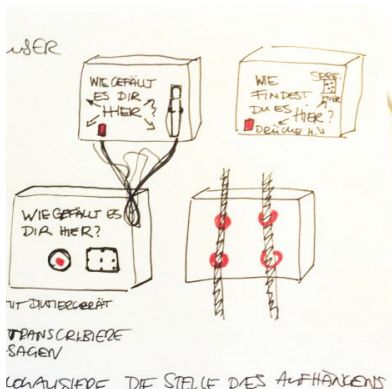 USER
WIE GEFÄLLT
ES DIR
HIER?
WIE
FINDEST
DU ES
HIER?
DRÜCKE
WIE GEFÄLLT ES
DIR HIER?
MIT DIKTIERGERÄT
TRANSCRIBIERE
SAGEN
LOKALISIERE DIE STELLE DES AUFHÄNGENS